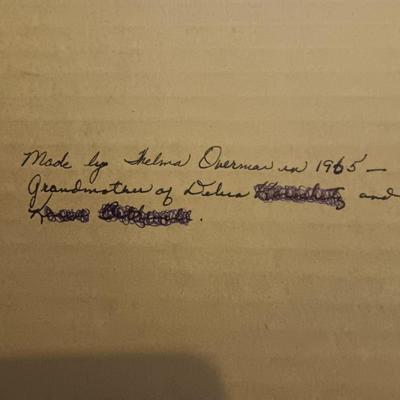 Made by Thelma Overman in 1965 —
Grandmother of Debra and
.